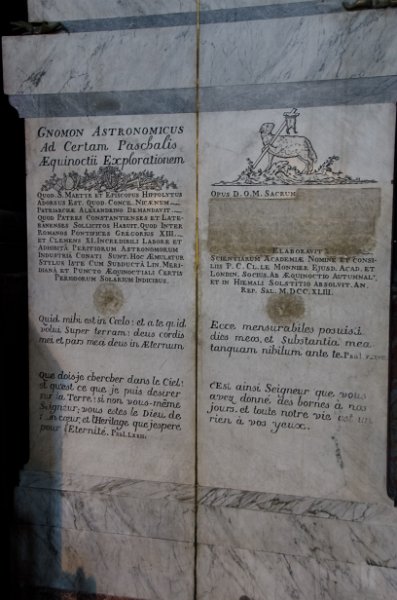 Gnomon Astronomicus
Ad Certam Paschalis
Æquinoctii Explorationem
Quod S. Martyr et Episcopus Hippolytus
Adorsus Est, Quod Conc. Nicænum
Patriarchæ Alexandrino Demandavit
Quod Patres Constantienses et Late-
ranenses Sollicitos Habuit, Quod Inter
Romanos Pontifices Gregorius XIII.
et Clemens XI. Incredibili Labore et
Adhibita Peritiorum Astronomorum
Industria Conati Sunt: Hoc Æmulatur
Stylus Iste Cum Subducta Lin. Meri-
dianâ et Puncto Æquinoctiali Certis
Periodorum Solarium Indicibus.
Quid mihi est in Cœlo: et a te quid
volui Super terram: deus cordis
mei et pars mea deus in Æternum
Que dois-je chercher dans le Ciel:
et qu'est ce que je puis desirer
sur la Terre: si non vous-même
Seigneur; vous estes le Dieu de
mon cœur, et l'Heritage que j'espere
pour l'Eternité. Psal. LXXII.
Opus D.O.M. Sacrum
Elaboravit
Scientiarum Academiæ Nomine et Consi-
liis P. C. Cl. Le Monnier Ejusd. Acad. et
Londin. Socius Ab Æquinoctio Autumnal.
et in Hiemali Solstitio Absolvit. An.
Rep. Sal. M.DCC.XLIII.
Ecce mensurabiles posuisti
dies meos, et Substantia mea
tanquam nihilum ante te. Psal.
C'Est ainsi Seigneur que vous
avez donné des bornes à nos
jours. et toute notre vie est un
rien à vos yeux.